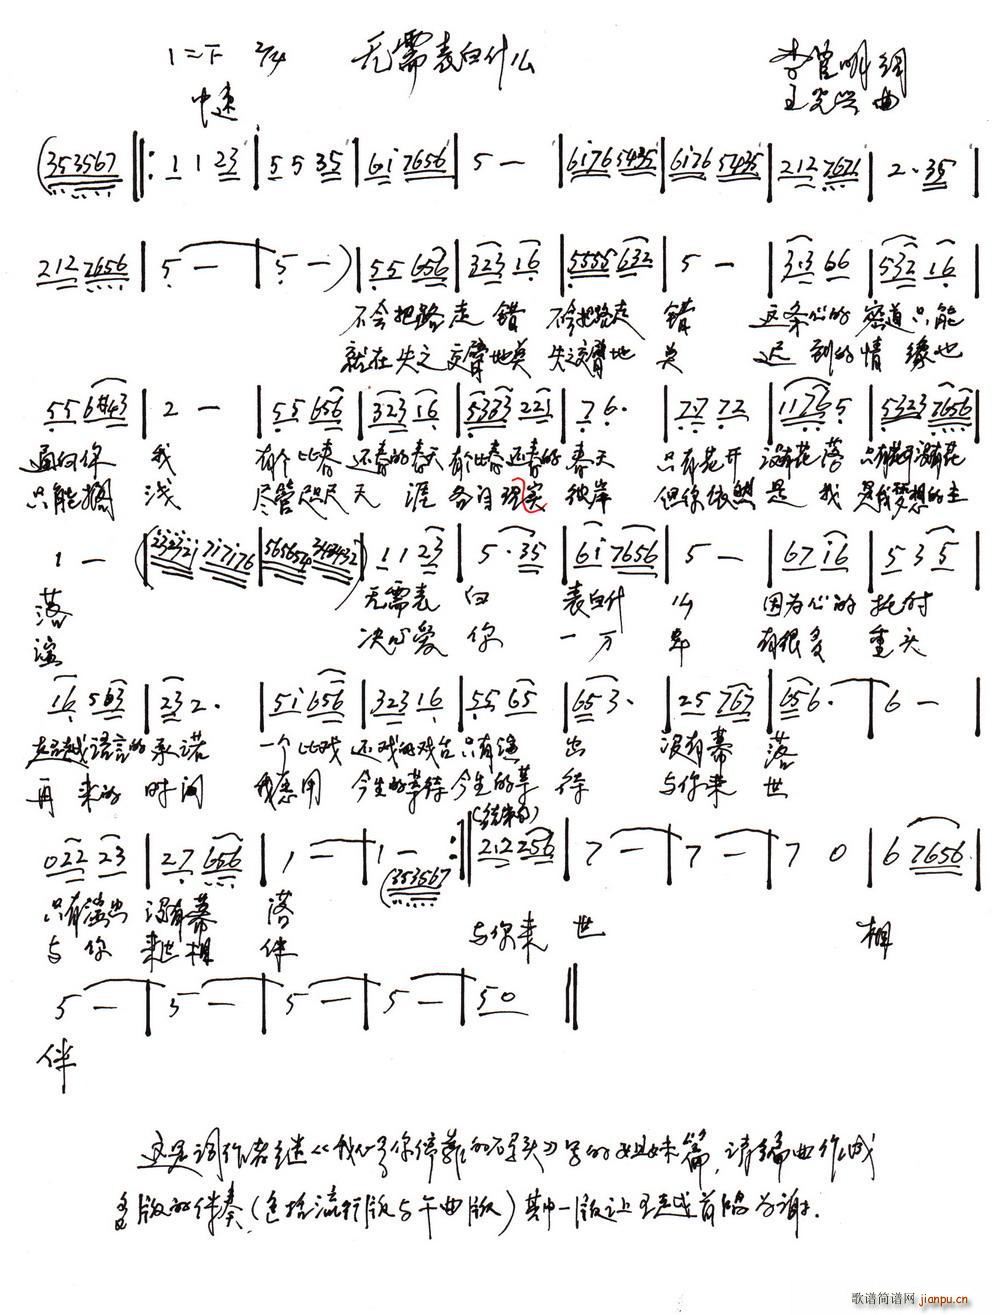 1=F 2/4 无需表白什么 李 明词
中速 王 兴曲
(353567 ‖: 1 1 23 | 5 5 35 | 6i 7656 | 5 — | 6i76 5435 | 6i76 5435 | 212 7671 | 2· 35 |
212 7656 | 5 — | 5 — ) | 55 656 | 323 16 | 5555 632 | 5 — | 3·3 66 | 532 16 |
不会把路走错 不会把路走 错 这条心的密道只能
就在失之交臂地 失之交臂地 迟到的情缘也
556#43 | 2 — | 55 656 | 323 16 | 5333 221 | 76· | 77 72 | 1176 5 | 5323 7656 |
通向你 我 有个比春还春的春天有个比春还春的 春天 只有花开 没有花落 只有花开没有花
只能搁 浅 尽管咫尺天涯各自现实 彼岸 但你依然是我 是我梦想的主
1 — | (23232i 7i7i76 | 565654 343432) | 1 1 23 | 5 · 35 | 6i 7656 | 5 — | 67 i6 | 5 3 5 |
落 无需表 白 表白什 么 因为心的托付
演 决心爱 你 一万 年 有很多 重头
16 563 | 23 2· | 5i 656 | 323 16 | 55 65 | 65 3· | 25 767 | 656· | 6 — |
超越语言的承诺 一个比戏还戏的戏台只有演 出 没有幕 落
再来的时间 我愿用 今生的等待今生的等 待 与你来 世
(结束句)
022 23 | 27 656 | 1 — | 1 — :‖ 212 256 | 7 — | 7 — | 7 0 | 6 7656 |
(353567
只有演出 没有幕 落 与你来 世 相
与你 来世相 伴
5 — | 5 — | 5 — | 5 — | 50 ‖
伴
这是词作者继《我 你停靠的码头》写的姐妹篇,请编曲作成
多版的伴奏,(包括流行版与 曲版)其中一版让 越首唱为谢.
歌谱简谱网
jianpu.cn